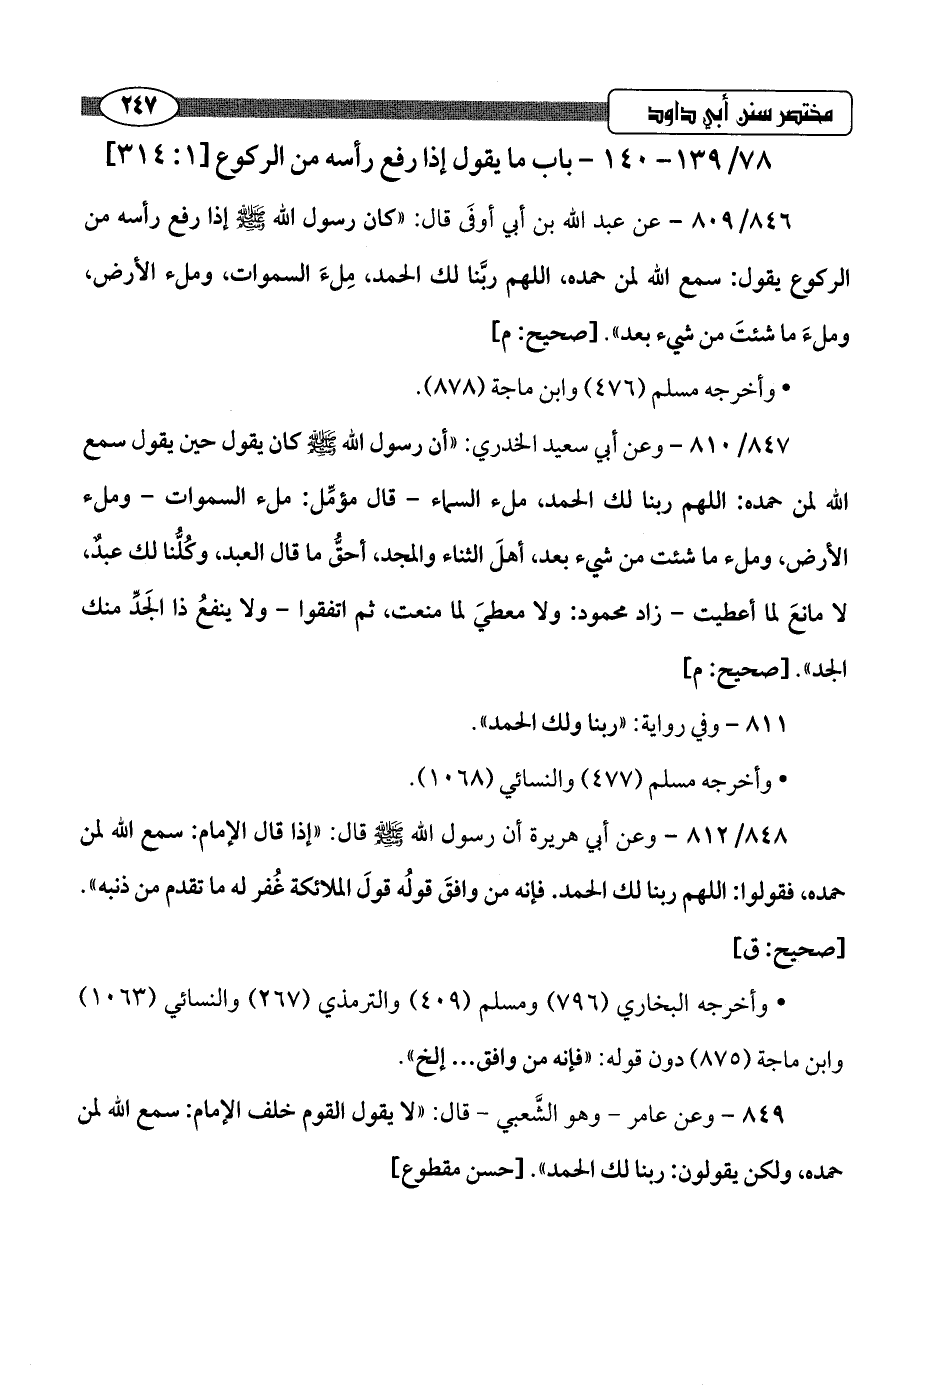 مختصر سنن أبي داود
٢٤٧
٧٨/ ١٣٩ - ١٤٠ - باب ما يقول إذا رفع رأسه من الركوع [١: ٣١٤]
٨٤٦/ ٨٠٩ - عن عبد الله بن أبي أوفَى قال: «كان رسول الله ﷺ إذا رفع رأسه من
الركوع يقول: سمع الله لمن حمده، اللهم ربَّنا لك الحمد، مِلءَ السموات، وملء الأرض،
وملءَ ما شئتَ من شيء بعد». [صحيح: م]
• وأخرجه مسلم (٤٧٦) وابن ماجة (٨٧٨).
٨٤٧/ ٨١٠ - وعن أبي سعيد الخدري: «أن رسول الله ﷺ كان يقول حين يقول سمع
الله لمن حمده: اللهم ربنا لك الحمد، ملء السماء - قال مؤمِّل: ملء السموات - وملء
الأرض، وملء ما شئت من شيء بعد، أهلَ الثناء والمجد، أحقُّ ما قال العبد، وكُلُّنا لك عبدٌ،
لا مانعَ لما أعطيت - زاد محمود: ولا معطيَ لما منعت، ثم اتفقوا - ولا ينفعُ ذا الجَدِّ منك
الجد». [صحيح: م]
٨١١ - وفي رواية: «ربنا ولك الحمد».
• وأخرجه مسلم (٤٧٧) والنسائي (١٠٦٨).
٨٤٨/ ٨١٢ - وعن أبي هريرة أن رسول الله ﷺ قال: «إذا قال الإمام: سمع الله لمن
حمده، فقولوا: اللهم ربنا لك الحمد. فإنه من وافقَ قولُه قولَ الملائكة غُفر له ما تقدم من ذنبه».
[صحيح: ق]
• وأخرجه البخاري (٧٩٦) ومسلم (٤٠٩) والترمذي (٢٦٧) والنسائي (١٠٦٣)
وابن ماجة (٨٧٥) دون قوله: «فإنه من وافق... إلخ».
٨٤٩ - وعن عامر - وهو الشَّعبي - قال: «لا يقول القوم خلف الإمام: سمع الله لمن
حمده، ولكن يقولون: ربنا لك الحمد». [حسن مقطوع]